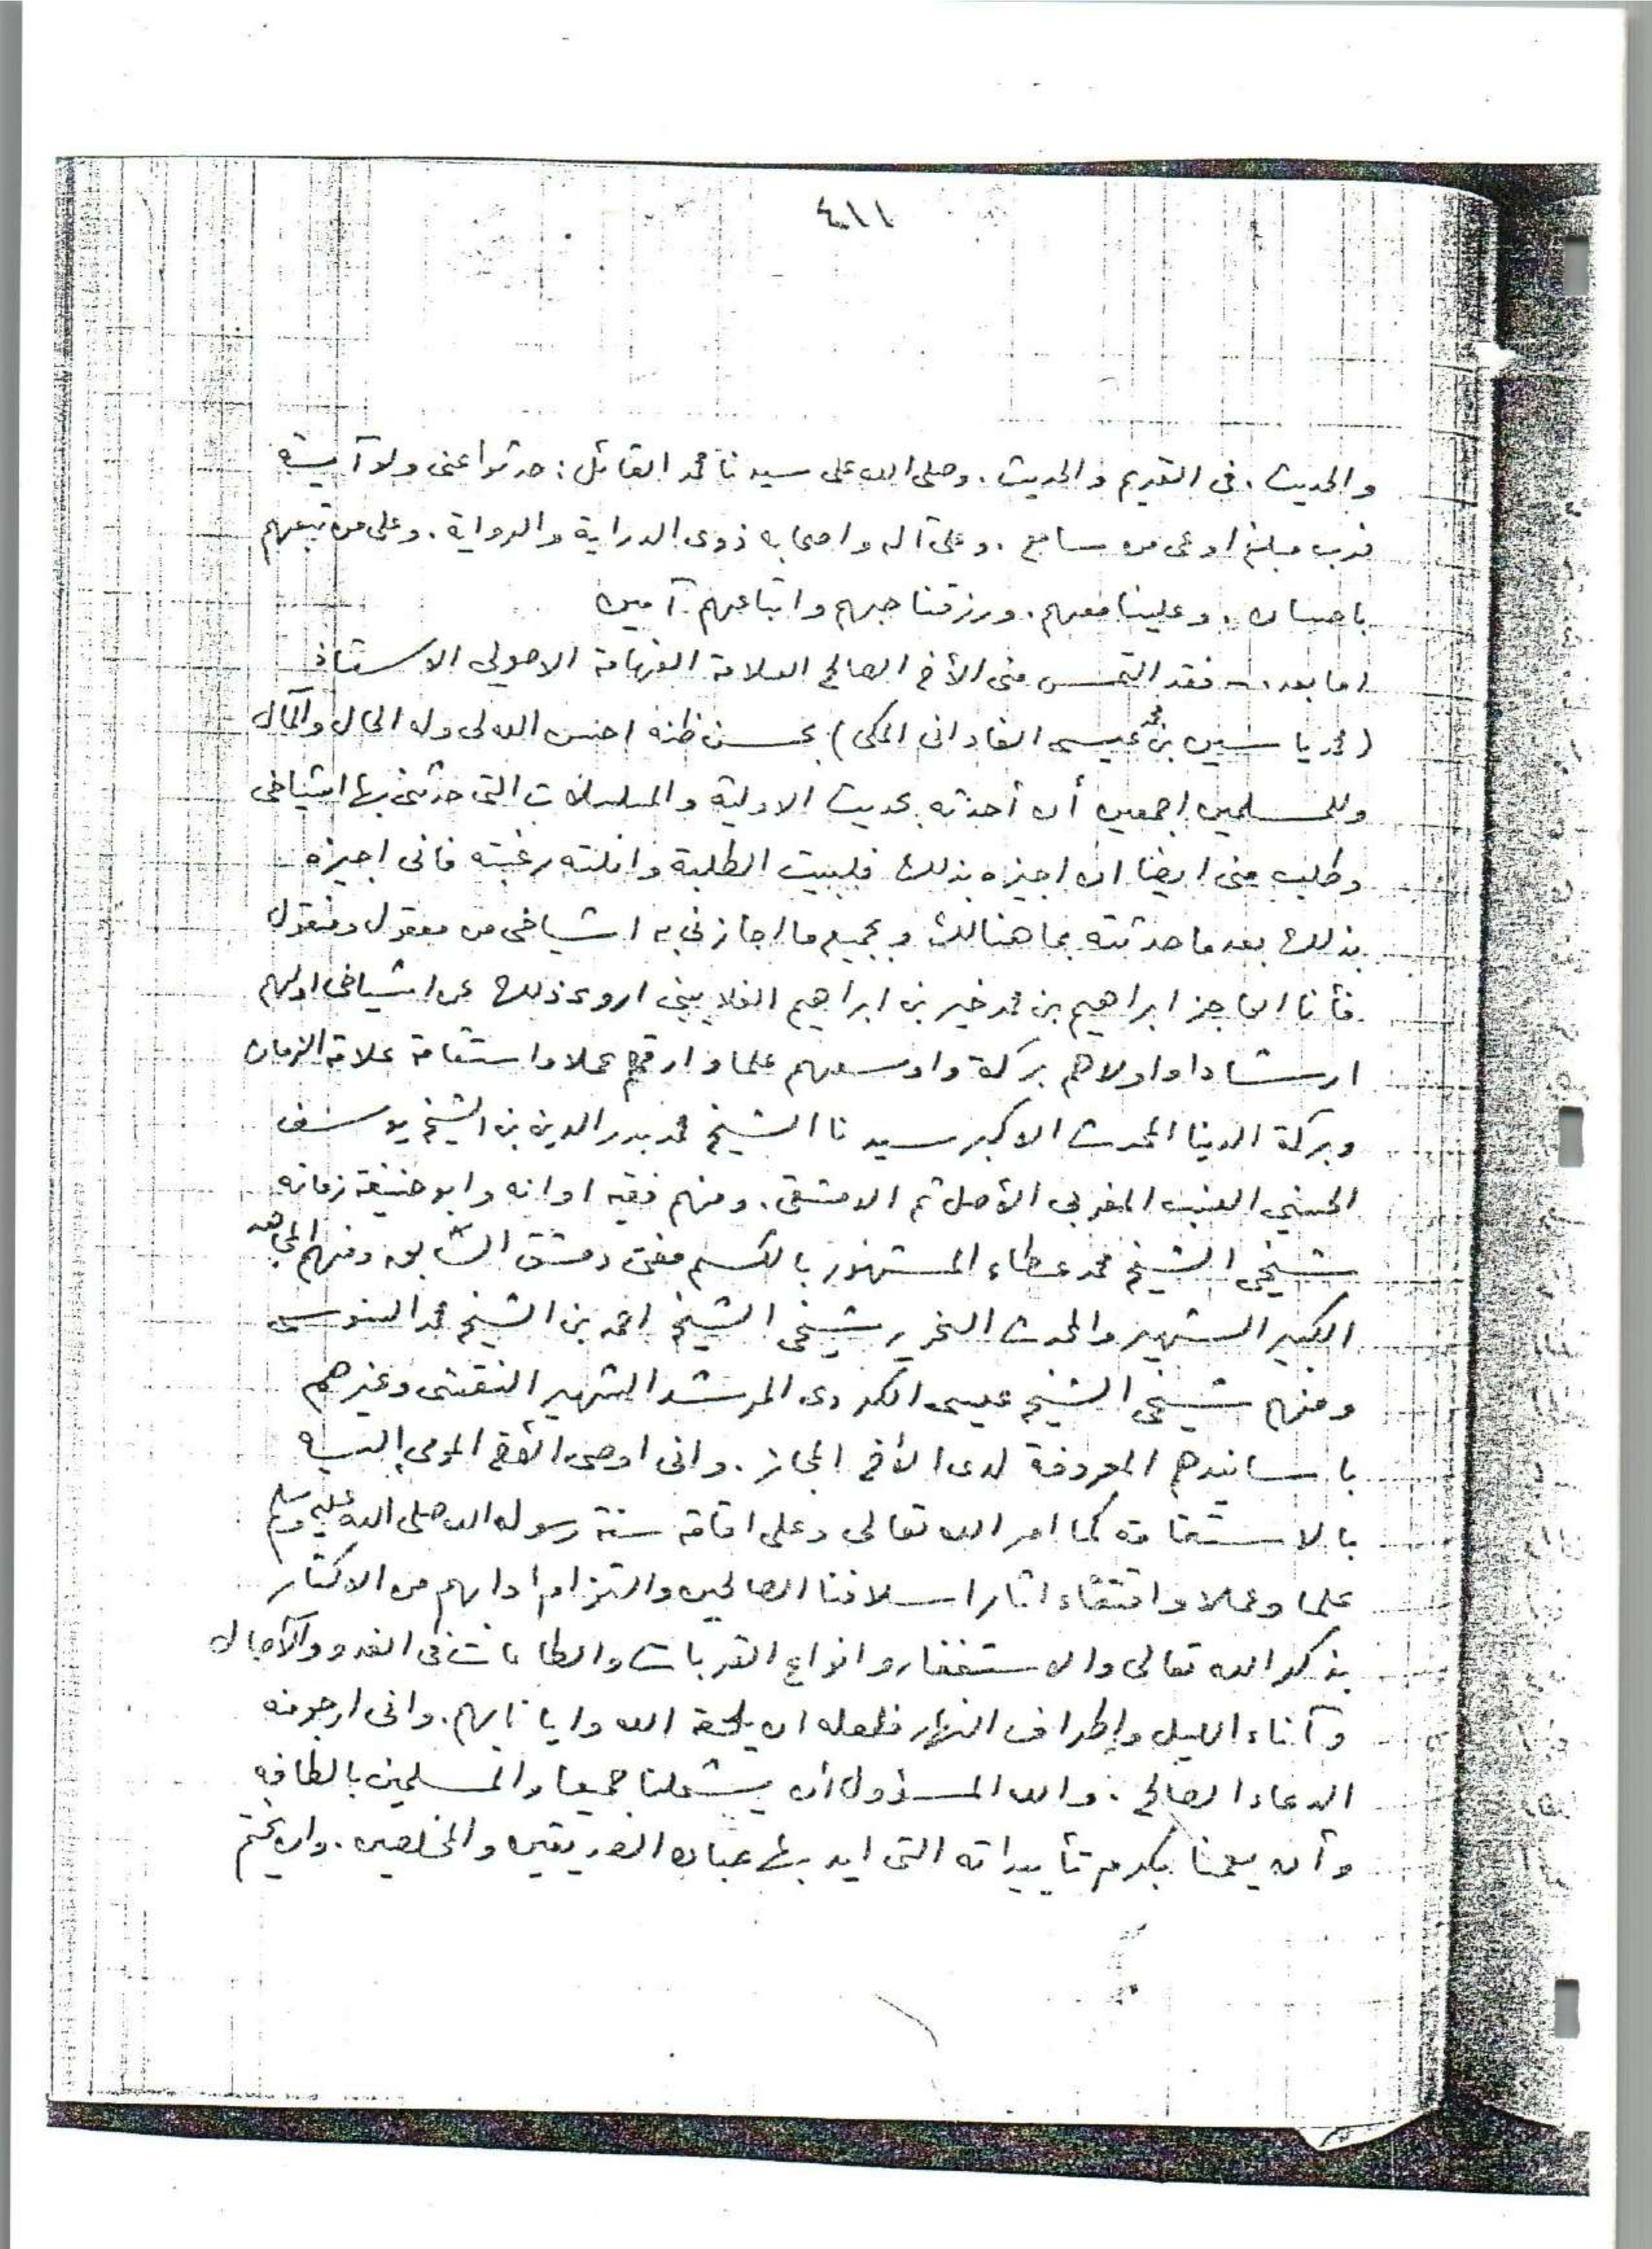 ٤١١
والحديث. فى القديم والحديث. وصلى الله على سيدنا محمد القائل: حدثوا عنى ولو آية
فرب مبلغ اوعى من سامع. وعلى آله واصحابه ذوى الدراية والرواية. وعلى من تبعهم
باحسان. وعلينا معهم. ورزقنا حبهم واتباعهم. آمين
اما بعد فقد التمس منى الأخ الصالح العلامة الفهامة الاصولي الاستاذ
(محمد ياسين بن محمد عيسى الفادانى المكى) بحسن ظنه احسن الله لى وله الحال والمآل
وللمسلمين اجمعين أن أحدثه بحديث الاولية والمسلسلات التى حدثنى بها اشياخى
وطلب منى ايضا ان اجيزه بذلك فلبيت الطلبة وانلته رغبته فانى اجيزه
بذلك بعد ما حدثته بما هنالك وبجميع ما اجازني به اشياخى من معقول ومنقول
فأنا العاجز ابراهيم بن محمد خير بن ابراهيم الغلاييني اروى ذلك عن اشياخى اولهم
ارشادا واولاهم بركة واوسعهم علما وارقهم عملا واستقامة علامة الزمان
وبركة الدنيا المحدث الاكبر سيدنا الشيخ محمد بدر الدين بن الشيخ يوسف
الحسني النسب المغربي الأصل ثم الدمشقى. ومنهم فقيه اوانه وابو حنيفة زمانه
شيخي الشيخ محمد عطاء المشهور بالكسم مفتى دمشق الشام ومنهم المجاهد
الكبير الشهير والمحدث النحرير شيخى الشيخ احمد بن الشيخ محمد السنوسى
ومنهم شيخى الشيخ عيسى الكردى المرشد الشهير النقشى وغيرهم
باسانيدهم المعروفة لدى الأخ المجاز. وانى اوصى الأخ المومى إليه
بالاستقامة كما امر الله تعالى وعلى اقامة سنة رسول الله صلى الله عليه وسلم
علما وعملا واقتفاء اثار اسلافنا الصالحين والتزام ادابهم من الاكثار
بذكر الله تعالى والاستغفار وانواع القربات والطاعات فى الغدو والآصال
وآناء الليل واطراف النهار فلعله ان يلحقه الله وايانا بهم. وانى ارجو منه
الدعاء الصالح. والله المسؤول أن يشملنا جميعا والمسلمين بالطافه
وأن يعمنا بكرم تأييداته التى ايد بها عباده الصديقين والمخلصين. وان يختم